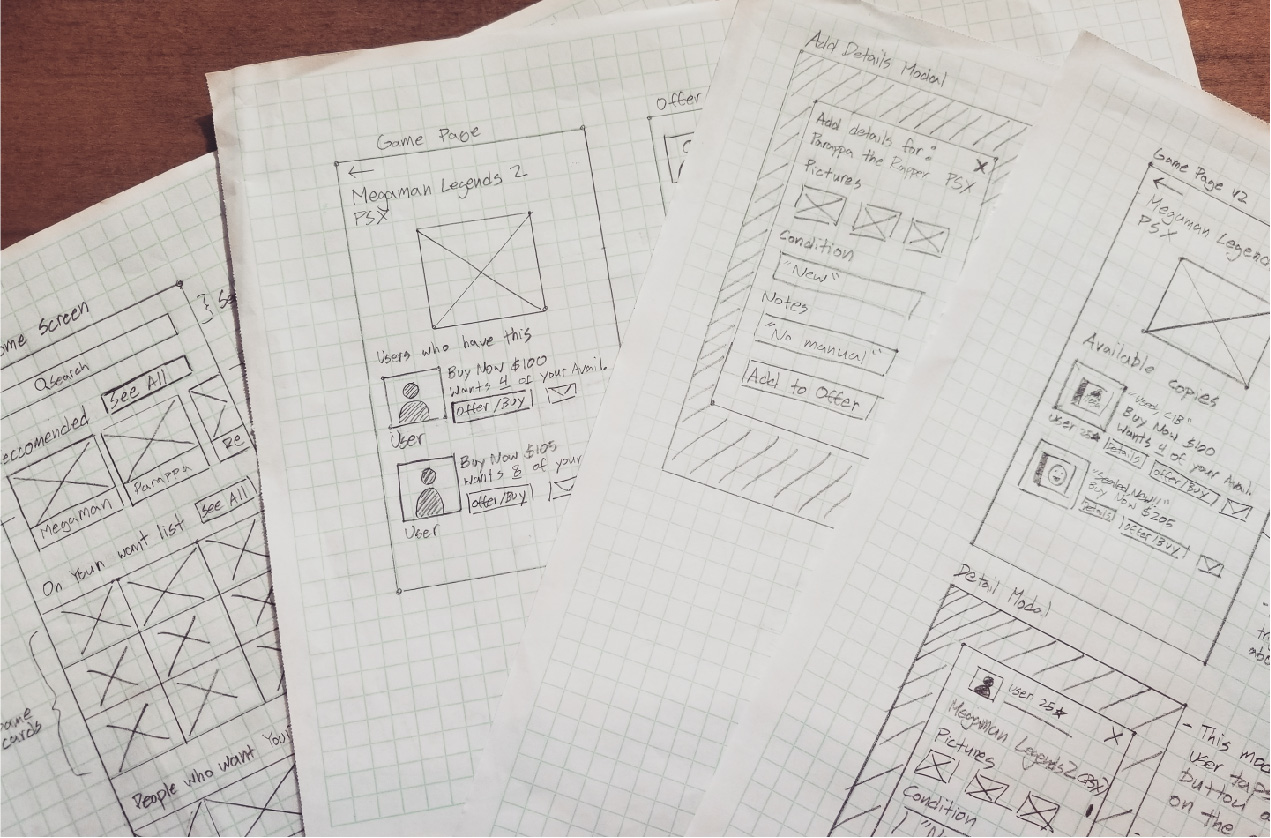 Screen
Search
See All
Megaman
Parappa
Re
On Your want list
See All
game
cards
People who want Your
Game Page
Megaman Legends 2
PSX
Users who have this
Buy Now $100
Wants 4 of your Avail.
Offer/Buy
User
Buy Now $105
Wants 8 of your
Offer/Buy
User
Offer
Add Details Modal
Add details for:
Parappa the Rapper PSX
X
Pictures
Condition
"New"
Notes
"No manual"
Add to Offer
Game Page v2
Megaman Legend
PSX
Available copies
Buy Now $100
Wants 4 of your Avail.
User 25★
Details
Offer/Buy
Buy Now $205
Details
Offer/Buy
Detail Modal
User 25★
X
Megaman Legends 2 PSX
Pictures
Condition
"N
- This mo
user taps
button
on the